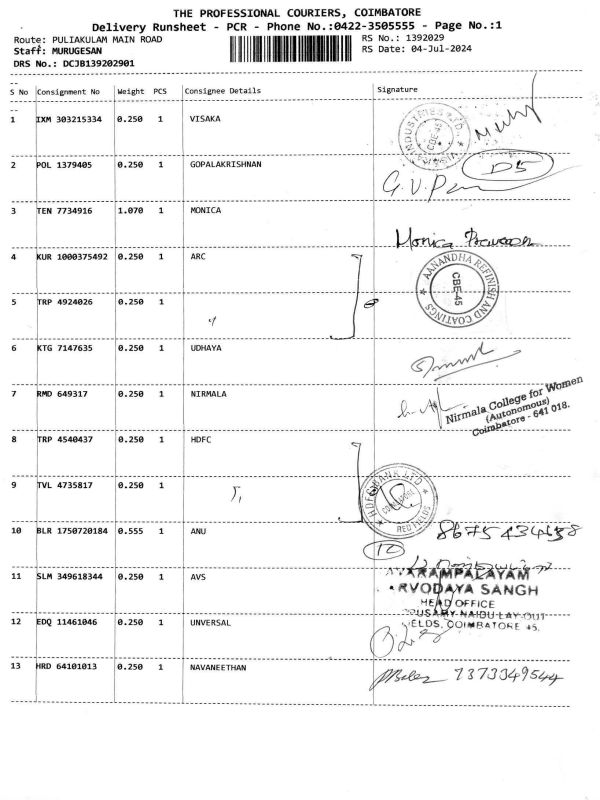 THE PROFESSIONAL COURIERS, COIMBATORE
Delivery Runsheet - PCR - Phone No.:0422-3505555 - Page No.:1
Route: PULIAKULAM MAIN ROAD RS No.: 1392029
Staff: MURUGESAN RS Date: 04-Jul-2024
DRS No.: DCJB139202901
S No Consignment No Weight PCS Consignee Details Signature
1 IXM 303215334 0.250 1 VISAKA
INDUSTRIES LTD. CBE-45
2 POL 1379405 0.250 1 GOPALAKRISHNAN
D5
G.V.P
3 TEN 7734916 1.070 1 MONICA
Monica
4 KUR 1000375492 0.250 1 ARC
AANANDHA REFINISH AND COATINGS CBE-45
5 TRP 4924026 0.250 1 〃
6 KTG 7147635 0.250 1 UDHAYA
7 RMD 649317 0.250 1 NIRMALA
Nirmala College for Women
(Autonomous)
Coimbatore - 641 018.
8 TRP 4540437 0.250 1 HDFC
HDFC BANK LTD RED FIELDS
9 TVL 4735817 0.250 1
10 BLR 1750720184 0.555 1 ANU
12
11 SLM 349618344 0.250 1 AVS
AVARAMPALAYAM
RVODAYA SANGH
HEAD OFFICE
NAIDU LAY-OUT
IELDS, COIMBATORE 45.
12 EDQ 11461046 0.250 1 UNVERSAL
13 HRD 64101013 0.250 1 NAVANEETHAN
7373349544